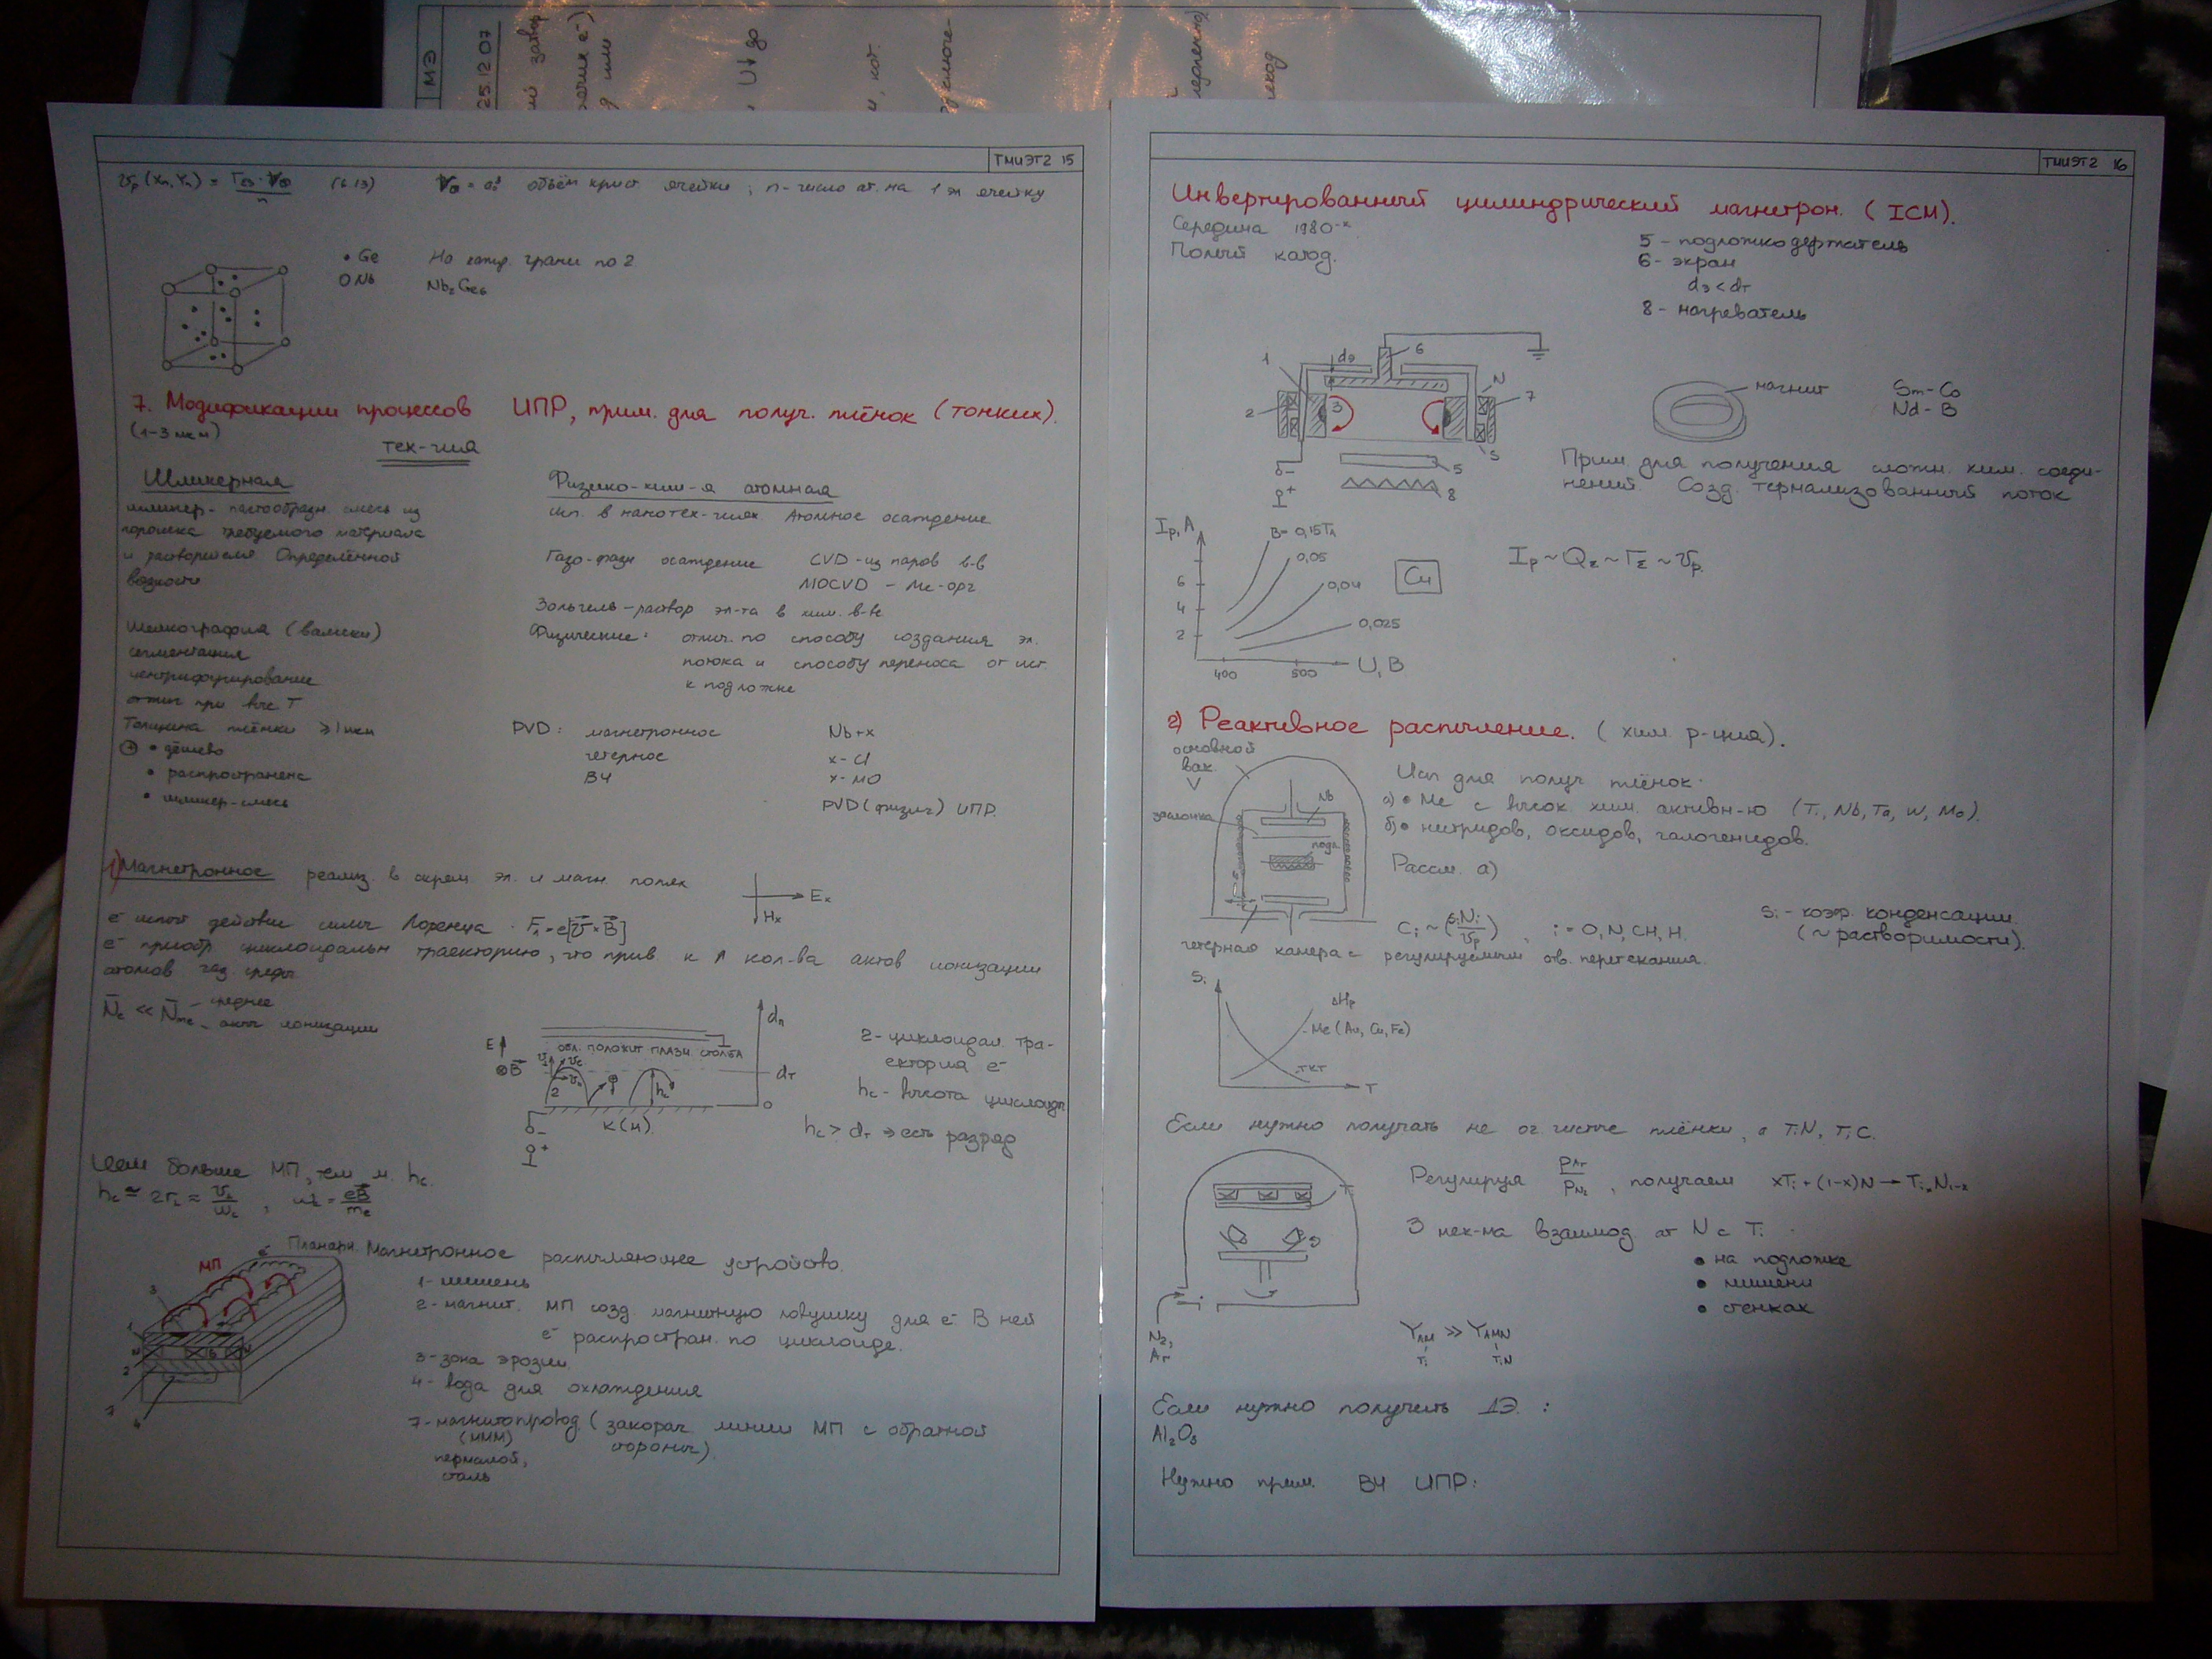 МЭ
25.12.07
ТМиЭТ2 15
(6.13) объём крист. ячейки ; n - число ат. на 1 эл ячейку
• Ge
O Nb
На кажд. грани по 2.
Nb₂Ge₆
7. Модификации процессов ИПР, прим. для получ. плёнок (тонких).
(1-3 мкм)
тех-гия
Шликерная
шликер - пастообразн. смесь из
порошка требуемого материала
и растворителя Определённой
вязкости
Шелкография (валики)
сегментация
центрифугирование
отжиг при выс T
Толщина плёнки ≥ 1 мкм
⊕ • дёшево
• распространена
• шликер-смесь
Физико-хим-я атомная
исп. в нанотех-гиях. Атомное осаждение
Газо-фазн осаждение CVD - из паров в-в
MOCVD - Me-орг
Зольгель - раствор эл-та в хим. в-ве
Физические: отлич. по способу создания эл.
потока и способу переноса от ист.
к подложке
PVD: магнетронное
гетерное
ВЧ
Nb+x
x-Cl
x-MO
PVD (физич) ИПР.
1) Магнетронное реализ. в скрещ. эл. и магн. полях
Eₓ
Hₓ
e⁻ испыт действие силы Лоренца Fл = e[v × B]
e⁻ приобр. циклоидальн траекторию, что прив. к ↑ кол-ва актов ионизации
атомов газ. среды.
- среднее
акты ионизации
E
B
обл. положит плазм. столба
dп
dт
0
2
hc
К(М).
2 - циклоидал. тра-
ектория e⁻
hc - высота циклоиды
hc > dт ⇒ есть разряд
Чем больше МП, тем м. hc.
hc ≅ 2rл ≈ vл/ωc , ωc = eB/me
Планарн. Магнетронное распыляющее устройство.
МП
3
1
2
7
4
1 - мишень
2 - магнит. МП созд. магнитную ловушку для e⁻. В ней
e⁻ распростран. по циклоиде.
3 - зона эрозии.
4 - вода для охлаждения
7 - магнитопровод (закорач линии МП с обратной
(МММ) стороны)
пермалой,
сталь
ТМиЭТ2 16
Инвертированный цилиндрический магнетрон. (ICM).
Середина 1980-х
Полый катод.
5 - подложкодержатель
6 - экран
dэ < dт
8 - нагреватель
1
2
3
dэ
6
N
7
S
5
8
магнит
Sm-Co
Nd-B
Прим. для получения сложн. хим. соеди-
нений. Созд. термализованный поток
Iр, А
6
4
2
400
500
U, В
B = 0,15Тл
0,05
0,04
0,025
Cu
Iр ~ Qε ~ Γε ~ vр.
2) Реактивное распыление. (хим. р-ция).
основной
вак.
заслонка
Nb
подл.
Исп для получ плёнок:
а) • Me с высок. хим. активн-ю (Ti, Nb, Ta, W, Mo).
б) • нитридов, оксидов, галогенидов.
Рассм. а)
Ci ~ (siNi/vр) , i = O, N, CH, H
Si - коэф. конденсации.
(~ растворимости).
гетерная камера с регулируемым отв. перетекания.
Si
ΔHр
- Me (Au, Cu, Fe)
ТКТ
T
Если нужно получать не ог. чистые плёнки, а TiN, TiC.
Регулируя pAr/pN₂ , получаем xTi + (1-x)N → TiₓN₁₋ₓ
3 мех-ма взаимод. ат N с Ti
• на подложке
• мишени
• стенках
N₂,
Ar
YAM ≫ YAMN
Ti TiN
Если нужно получить ДЭ. :
Al₂O₃
Нужно прим. ВЧ ИПР: